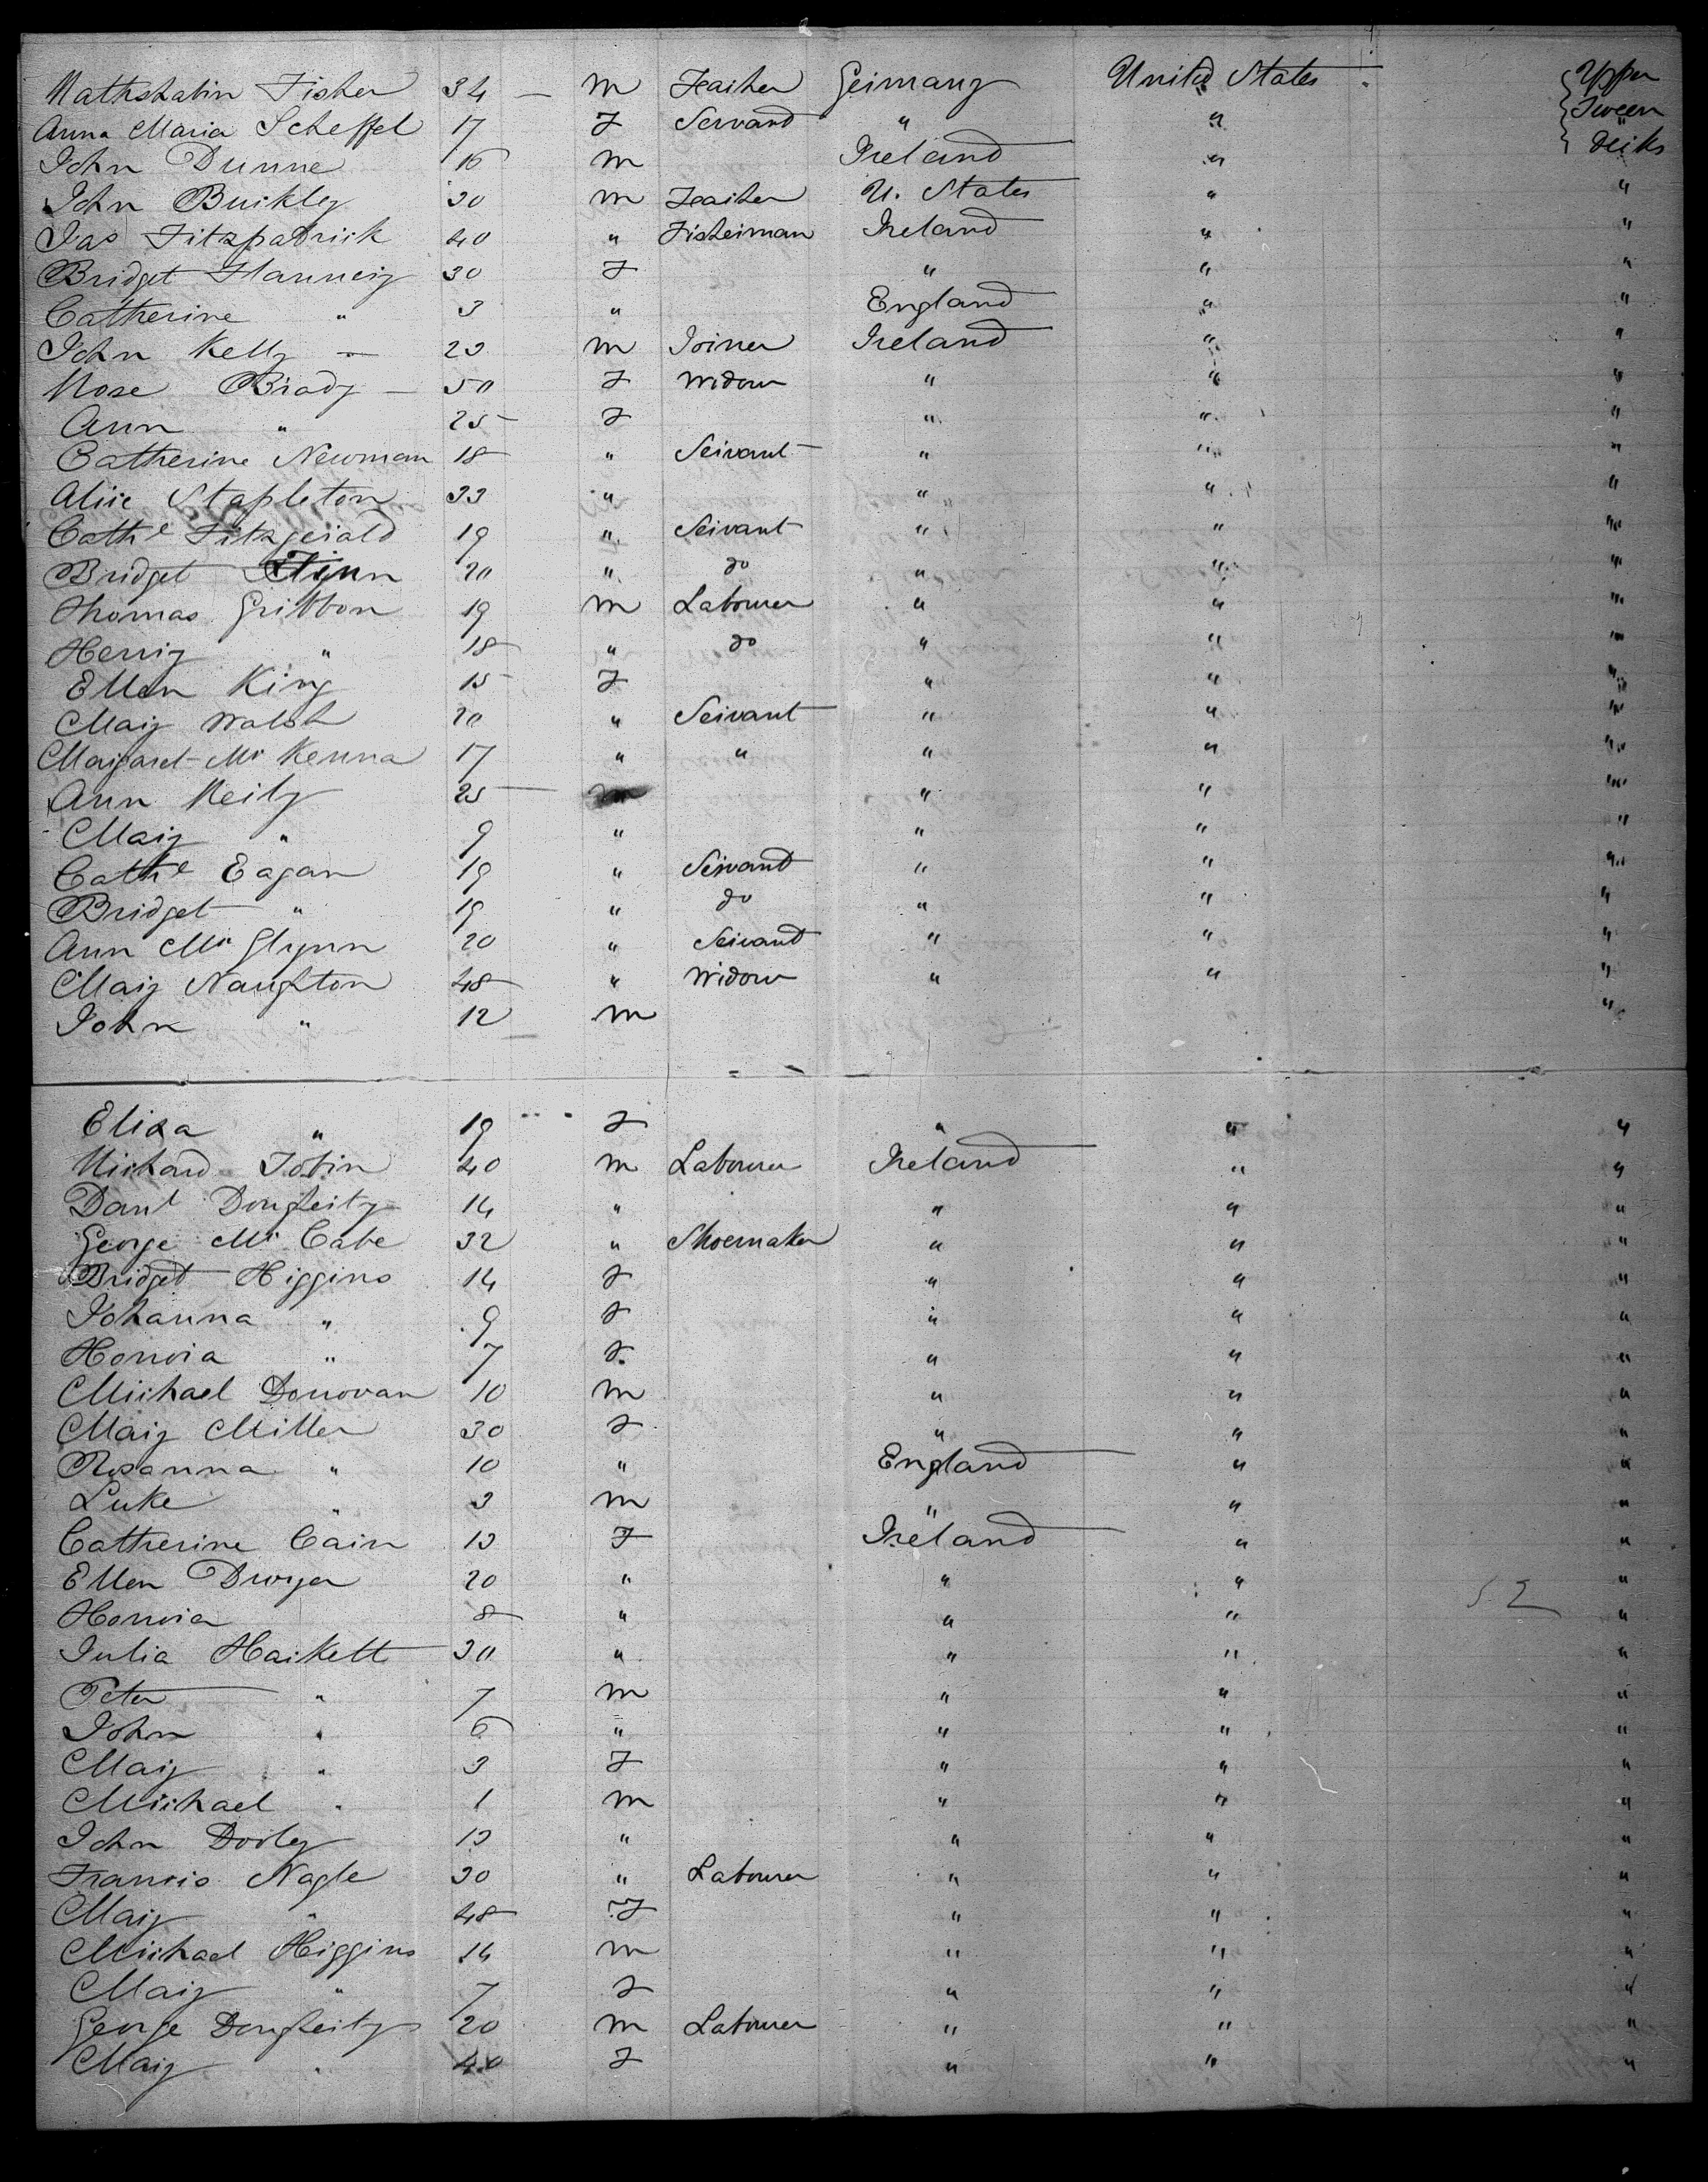 Fisher 34 — m Teacher Germany United States Upper
Anna Maria Scheffel 17 F Servand " " Tween
John Dunne 16 m Ireland " Decks
John Buckley 30 m Teacher U. States " "
Jas Fitzpatrick 40 " Fisherman Ireland " "
Bridget Flannery 30 F " " "
Catherine " 3 " England " "
John Kelly — 23 m Joiner Ireland " "
Rose Brady — 50 F Widow " " "
Ann " 25 F " " "
Catherine Newman 18 " Servant " " "
Alice Stapleton 33 " " " "
Cathe Fitzgerald 19 " Servant " " "
Bridget Finn 20 " do " " "
Thomas Gribbon 19 m Labourer " " "
Henry " 18 " do " " "
Ellen King 15 F " " "
Mary Walsh 20 " Servant " " "
Margaret Mc Kenna 17 " " " " "
Ann Reily 25 " " "
Mary " 9 " " " "
Cathe Eagan 19 " Servand " " "
Bridget " 19 " do " " "
Ann Mc Glynn 20 " Servand " " "
Mary Naughton 48 " Widow " " "
John " 12 m "
Eliza " 19 F " " "
Richard Tobin 40 m Labourer Ireland " "
Danl Dougherty 14 " " " "
George Mc Cabe 32 " Shoemaker " " "
Bridget Higgins 14 F " " "
Johanna " 9 F " " "
Honora " 7 F " " "
Michael Donovan 10 m " " "
Mary Miller 30 F " " "
Rosanna " 10 " England " "
Luke " 3 m " " "
Catherine Cain 13 F Ireland " "
Ellen Dwyer 20 " " " "
Honora 8 " " " "
Julia Hackett 30 " " " "
Peter " 7 m " " "
John " 6 " " " "
Mary " 3 F " " "
Michael " 1 m " " "
John Dooley 13 " " " "
Francis Nagle 30 " Labourer " " "
Mary " 48 F " " "
Michael Higgins 14 m " " "
Mary " 7 F " " "
George Dougherty 20 m Labourer " " "
Mary " 40 F " " "